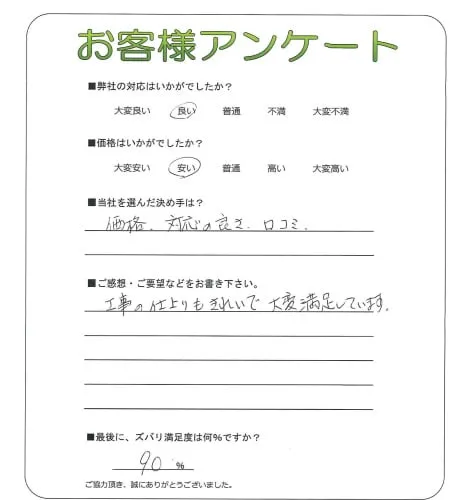 お客様アンケート
■弊社の対応はいかがでしたか?
大変良い 良い 普通 不満 大変不満
■価格はいかがでしたか?
大変安い 安い 普通 高い 大変高い
■当社を選んだ決め手は?
価格、対応の良さ、口コミ
■ご感想・ご要望などをお書き下さい。
工事の仕上りもきれいで大変満足しています。
■最後に、ズバリ満足度は何%ですか?
90 %
ご協力頂き、誠にありがとうございました。